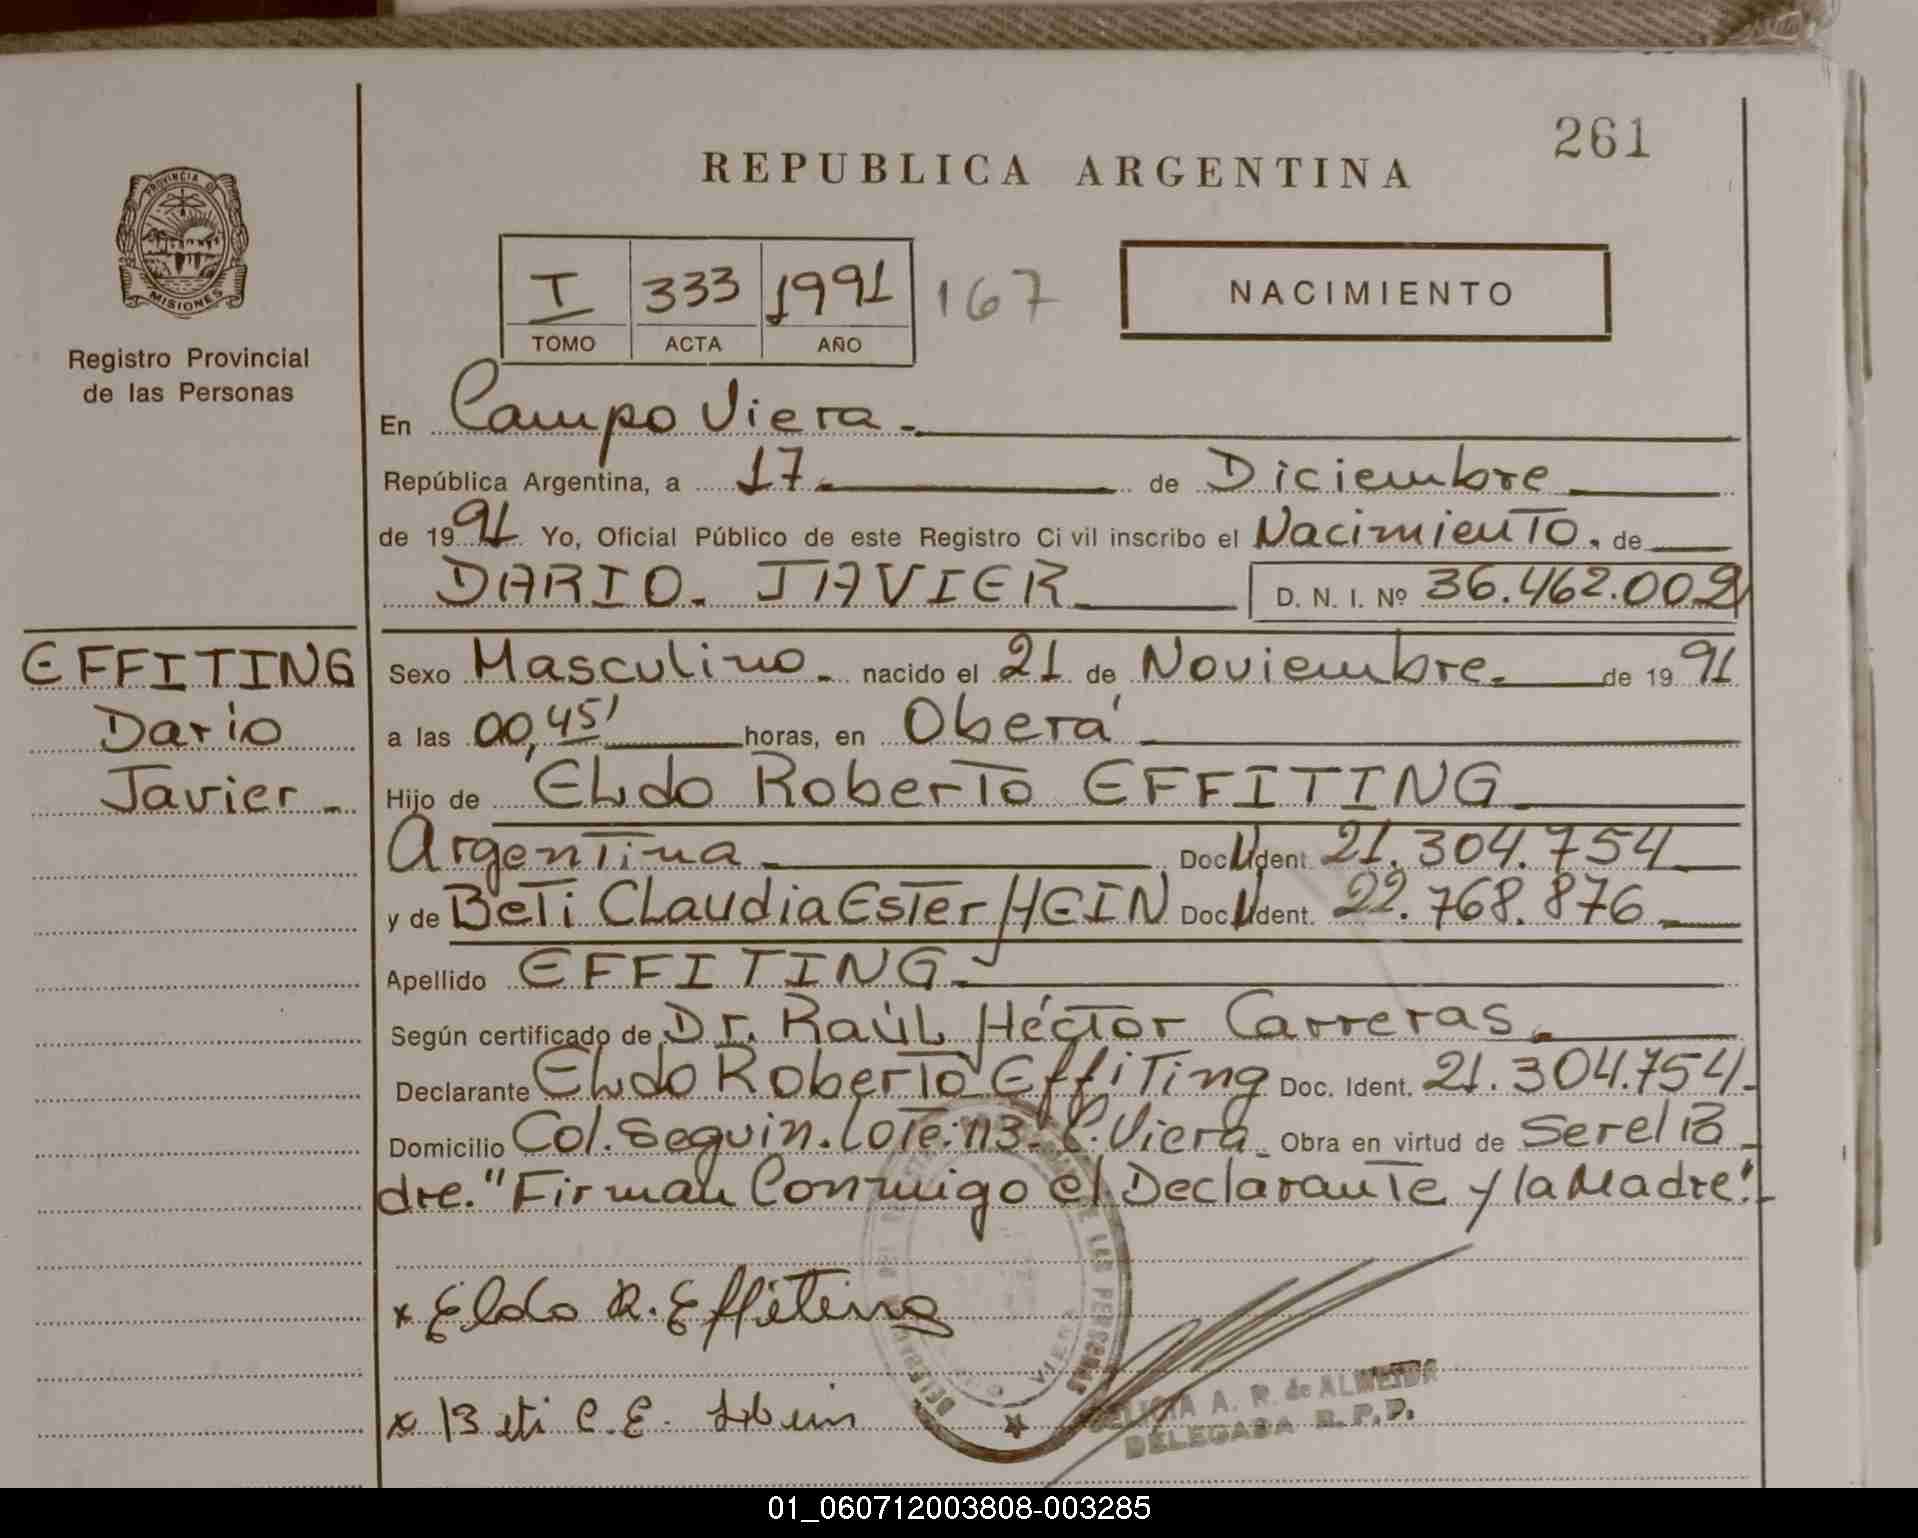 261
REPUBLICA ARGENTINA
PROVINCIA DE
MISIONES
Registro Provincial
de las Personas
I 333 1991 167
TOMO ACTA AÑO
NACIMIENTO
En Campo Viera.
República Argentina, a 17. de Diciembre
de 1991 Yo, Oficial Público de este Registro Civil inscribo el Nacimiento. de
DARIO. JAVIER D. N. I. Nº 36.462.002
EFFITING
Dario
Javier.
Sexo Masculino. nacido el 21 de Noviembre. de 1991
a las 00,45' horas, en Oberá
Hijo de Eldo Roberto EFFITING
Argentina. Doc. Ident. 21.304.754
y de Beti Claudia Ester HEIN Doc. Ident. 22.768.876
Apellido EFFITING.
Según certificado de Dr. Raúl Héctor Carreras.
Declarante Eldo Roberto Effiting Doc. Ident. 21.304.754.
Domicilio Col. Seguin. Lote: 113. C. Viera. Obra en virtud de Ser el Pa
dre. "Firman Conmigo el Declarante y la Madre".
x Eldo R. Effiting
x Beti C. E. Hein
LAS PERSONAS
VIERA
A. R. de ALMEIDA
DELEGADA R. P. P.
01_060712003808-003285